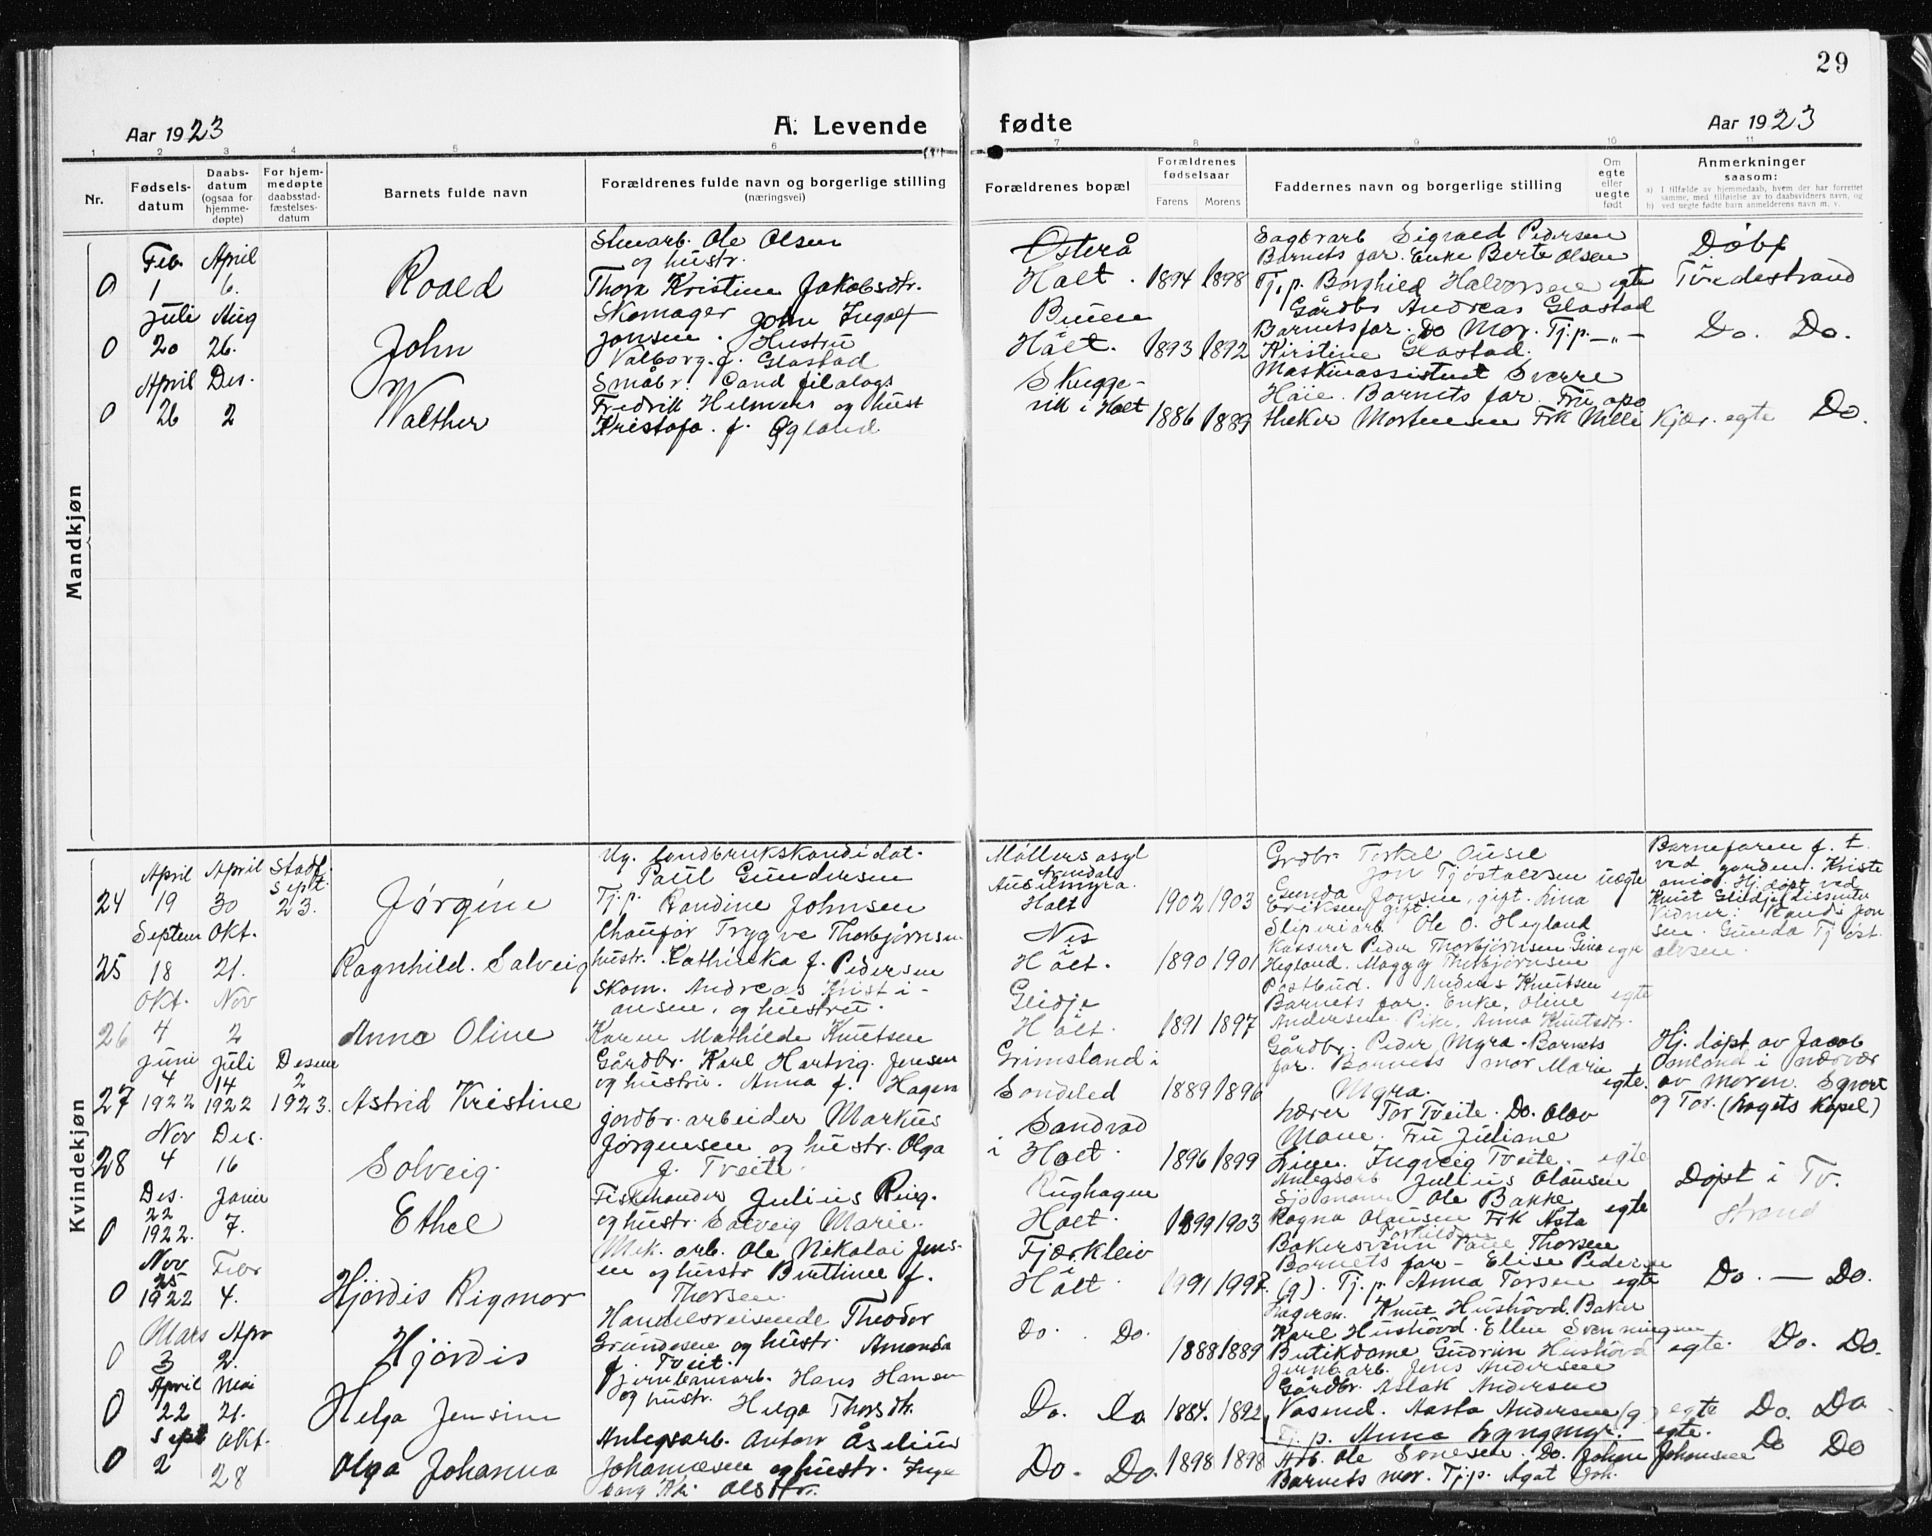 29
Aar 1923
A. Levende fødte
Aar 1923
1 2 3 4 5 6 7 8 9 10 11
Nr.
Fødsels-
datum
Daabs-
datum
(ogsaa for
hjemme-
døpte)
For hjem-
medøpte
daabsstad-
fæstelses-
datum
Barnets fulde navn
Forældrenes fulde navn og borgerlige stilling
(næringsvei)
Forældrenes bopæl
Forældrenes
fødselsaar
Farens Morens
Faddernes navn og borgerlige stilling
Om
egte
eller
uegte
født
Anmerkninger
saasom:
a) I tilfælde av hjemmedaab, hvem der har forrettet
samme, med tilføielse av to daabsvidners navn, og
b) ved uegte fødte barn anmelderens navn m. v.
Mandkjøn
0
Feb. 1
April 6.
Roald
Stenarb. Ole Olsen
og hustr.
Thora Kristine Jakobsdtr.
Østerå
Holt.
1894 1898
Sagbrarb Sigvald Pedersen
Barnets far. Enke Berte Olsen
Tj.p. Borghild Halvorsen egte
Døbt
Tvedestrand
0
Juli 20
Aug 26.
John
Skomager John Ingolf
Jonsen. Hustru
Valborg. f. Glastad
Holt.
1893 1892
Gårdbr Andreas Glastad
Barnets far. Do Mor. Tj.p. -"-
Kirstine Glastad.
Do. Do.
0
April 26
Des. 2
Walther
Småbr. Cand filologs
Fredrik Helmers og hust
Kristofa. f. Øgland
Skugge-
vik i Holt
1886 1889
Maskinassistent Sverre
Høie. Barnets far. Fru apo
theker Mortensen Frk Nilli Kjær. egte
Do.
Kvindekjøn
24
April 19
April 30
Stadf. Sept. 23.
Jørgine
Ug. landbrukskandidat.
Paul Gundersen
Tj.p. Randine Johnsen
Møllers asyl
Arendal
Holt
1902 1903
Grdbr. Torkel Ausel
Jon Tjøstalvsen uegte
Gunda Jonsen, gift. Lina
Eriksen gift.
Barnefaren f. t.
ved garden. Kriste
ania. Hj. døpt ved
25
Septem 18
Okt. 21.
Ragnhild. Salveig
Chaufør Trygve Thorbjørnsen
hustr. Kathinka f. Pedersen
Nes
Holt.
1890 1901
Sliperiarb Ole O. Hegland
Kasserer Peder Thorbjørnsen Gina egte
Hegland. Maggy Thorbjørnsen
26
Okt. 4
Nov 2
Anna Oline
Skom. Andreas Kristi-
ansen, og hustru.
Karen Mathilde Knutsen
Gleidje
Holt.
1891 1897
Postbud. Anders Knutsen
Barnets far. Enke, Oline egte
Andersen. Pike, Anna Knutsdtr.
27
Juni 4 1922
Juli 14 1922
Desem 2 1923.
Astrid Kristine
Gårdbr. Karl Hartvig Jensen
og hustru. Anna f. Hagen
Grimsland i
Søndeled
1889 1896
Gårdbr. Peder Myra. Barnets
far. Barnets mor Marie
Myra. egte.
Hj. døpt av Jacob
Omland i nærvær
av moren. Sgvert
og Tor. (Lagets Kapel)
28
Nov 4
Des. 16
Solveig.
Jordbr. arbeider Markus
Jørgensen og hustr. Olga
f. Tveite.
Sandvad
i Holt.
1896 1899
Lærer Tor Tveite. Do. Olav
Moen. Fru Juliane
Lien. Ingveig Tveite. egte
0
Des. 22 1922.
Janu 7.
Ethel
Fiskehandler Julius Ring.
og hustr. Salveig Marie.
Rughagen
Holt.
1899 1903
Anlegsarb Julius Olausen
Sjømann Ole Bakke
Ragna Olausen Frk Asta egte
Døpt i Tv.
strand
0
Nov 25 1922
Febr 4.
Hjørdis Rigmor
Mek. arb. Ole Nikolai Jens-
en og hustr Birttinee f.
Thorsen.
Fjærkleiv
i
Holt
1991 1997.
Bakersvenn Paul Thorsen
Barnets far - Elise Pedersen
(g). Tj.p. Anna Torsen egte
Do. — Do.
0
Mars 3
Apr 2.
Hjørdis
Handelsreisende Theodor
Grundesen og hustr. Amanda
f. Tveit.
Do. Do.
1888 1889
Lagerm. Knut Hushovd. Baker
Karl Hushovd. Ellen Svenningsen
Butikdame Gudrun Hushovd egte.
Do. Do.
0
April 22
Mai 21.
Helga Jensine
Jernbanearb. Hans Hansen
og hustr. Helga Thorsdtr.
Do. Do
1884. 1892
Jernb arb. Jens Andersen
Gårdbr. Aslak Andersen
Vasmd. Aasta Andersen (g) egte
Tj.p. Anna Langmyr. egte.
Do. Do
0
Sept 2
Okt. 28
Olga Johanna
Anlegsarb. Anton Åselius
Johannesen og hustr. Inge
borg Olsdtr.
Do. Do.
1898 1898
Arb. Ole Sørensen. Do. Johan Johnsen
Barnets mor. Tj.p. Agat Joh.
Do Do